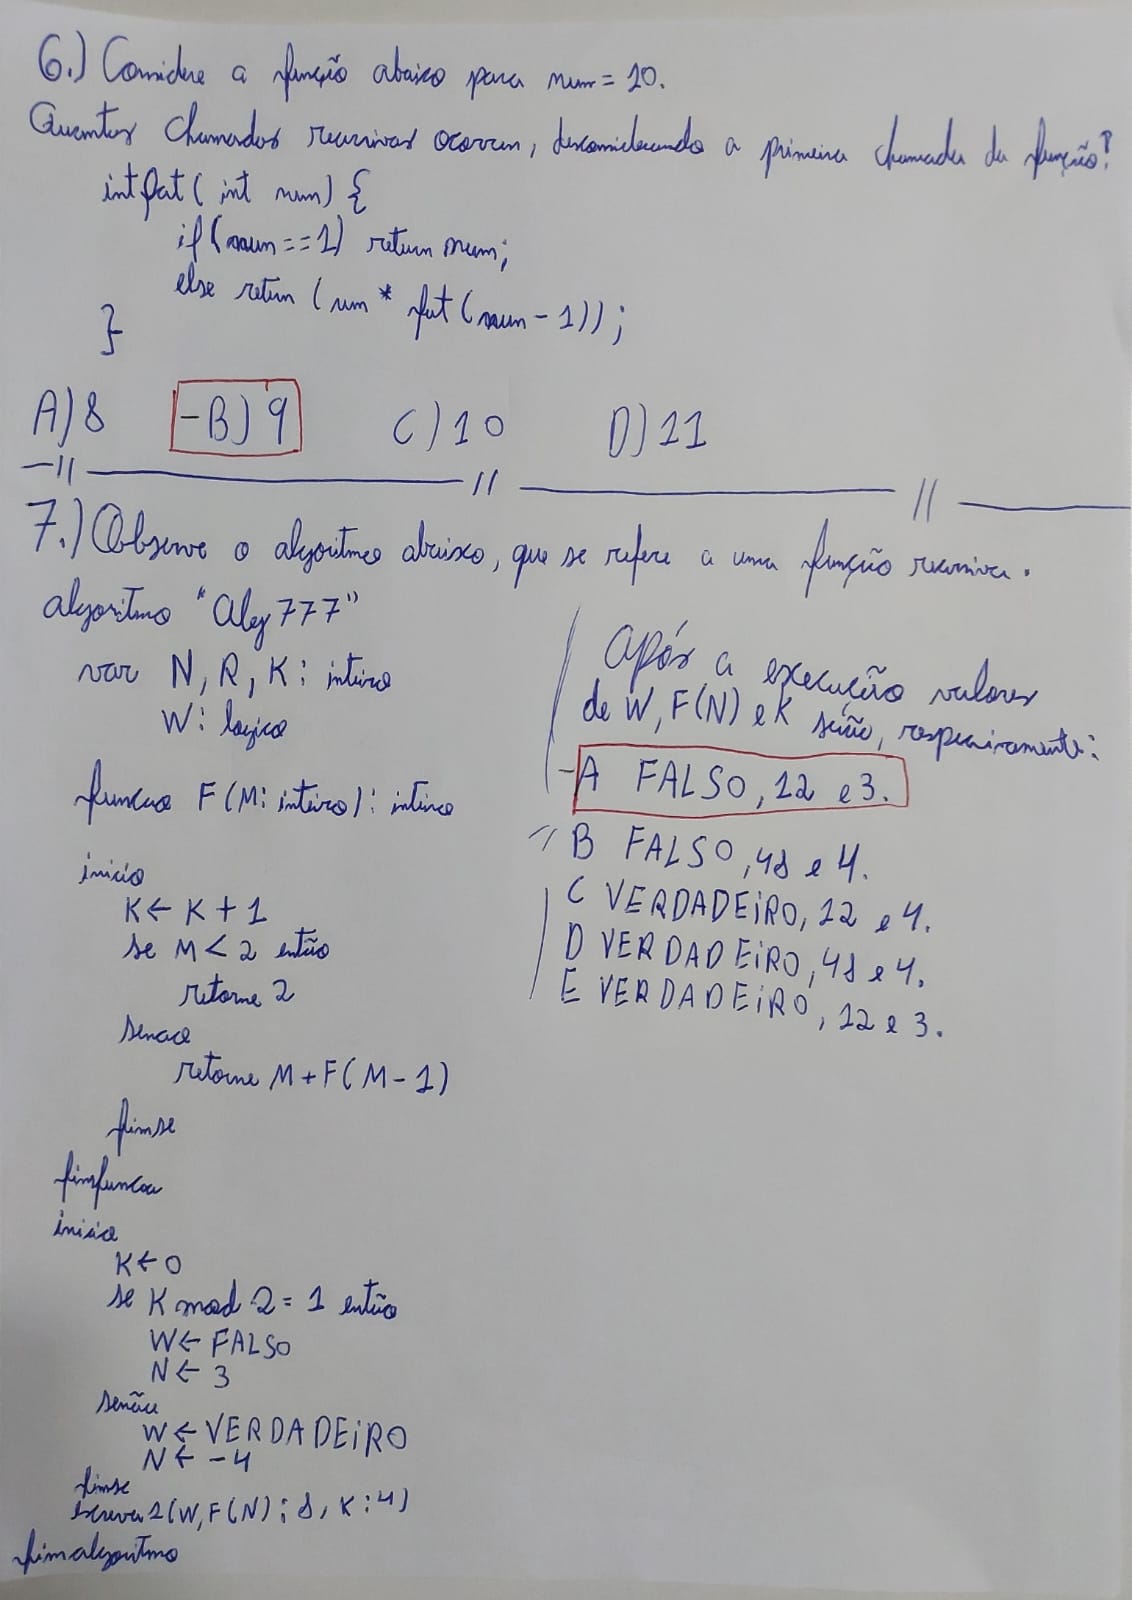 6.) Considere a função abaixo para num = 10.
Quantas chamadas recursivas ocorrem, desconsiderando a primeira chamada da função?
int fat( int num) {
if(num==1) return num;
else retun (num * fat(num-1));
}
A) 8 -B) 9 C) 10 D) 11
7.) Observe o algoritmo abaixo, que se refere a uma função recursiva.
algoritmo "Alg777"
var N, R, K: inteiro
W: logico
funcao F(M: inteiro): inteiro
inicio
K← K + 1
se M < 2 então
retorne 2
senao
retorne M + F(M-1)
fimse
fimfuncao
inicio
K← 0
se K mod 2 = 1 então
W← FALSO
N← 3
senão
W← VERDADEIRO
N← -4
fimse
(W,F(N): 8, K:4)
fimalgoritmo
Após a execução valores
de W, F(N) e K serão, respectivamente:
-A FALSO, 12 e 3.
B FALSO, 48 e 4.
C VERDADEIRO, 12 e 4.
D VERDADEIRO, 48 e 4.
E VERDADEIRO, 12 e 3.